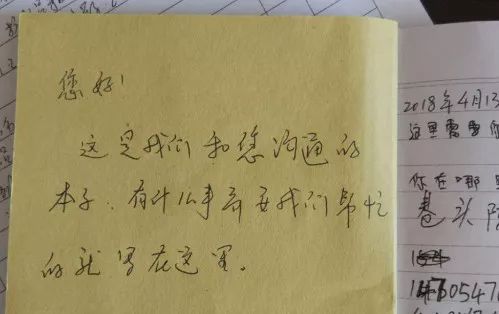 您好!
这是我们和您沟通的
本子,有什么事需要我们帮忙
的就写在这里。
2018年4月13
这里需要
你在哪里
巷头